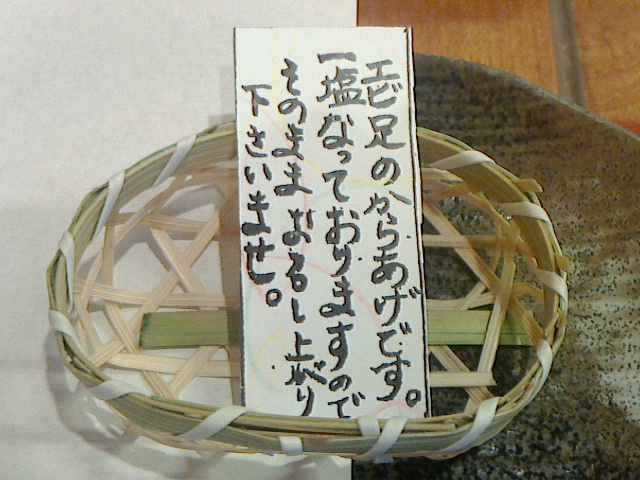 エビ足のからあげです。
一塩なっておりますので
そのままおめし上がり
下さいませ。